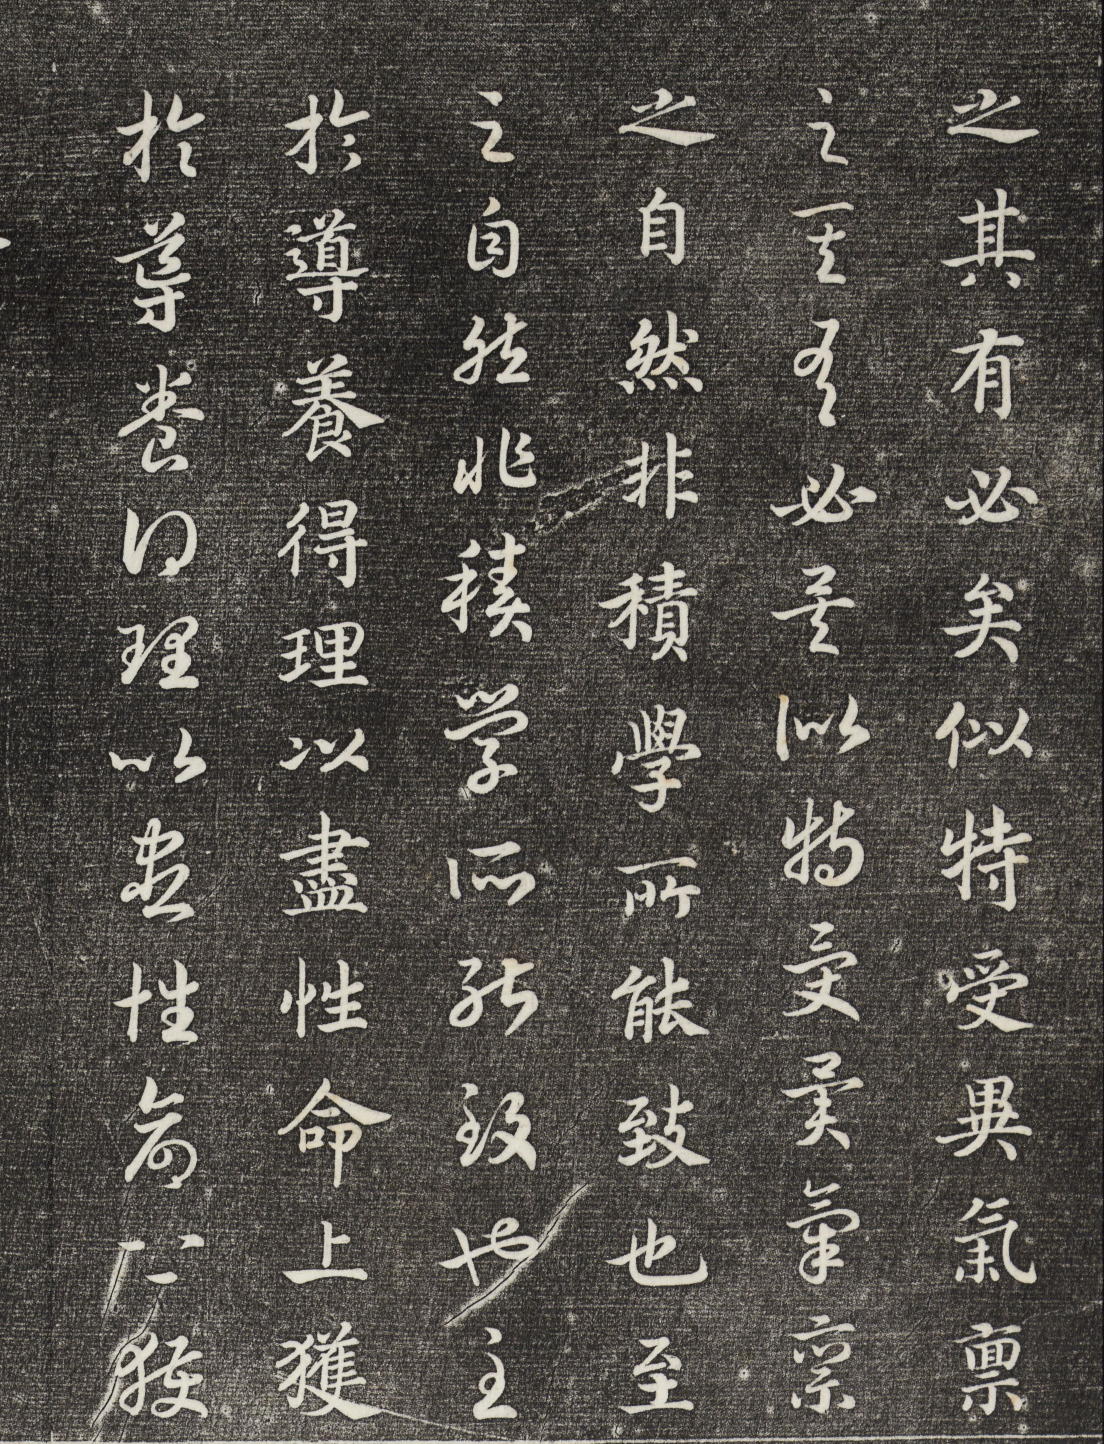 之其有必矣似特受異氣禀
之其有必矣似特受異氣禀
之自然非積學所能致也至
之自然非積學所能致也至
於導養得理以盡性命上獲
於導養得理以盡性命上獲